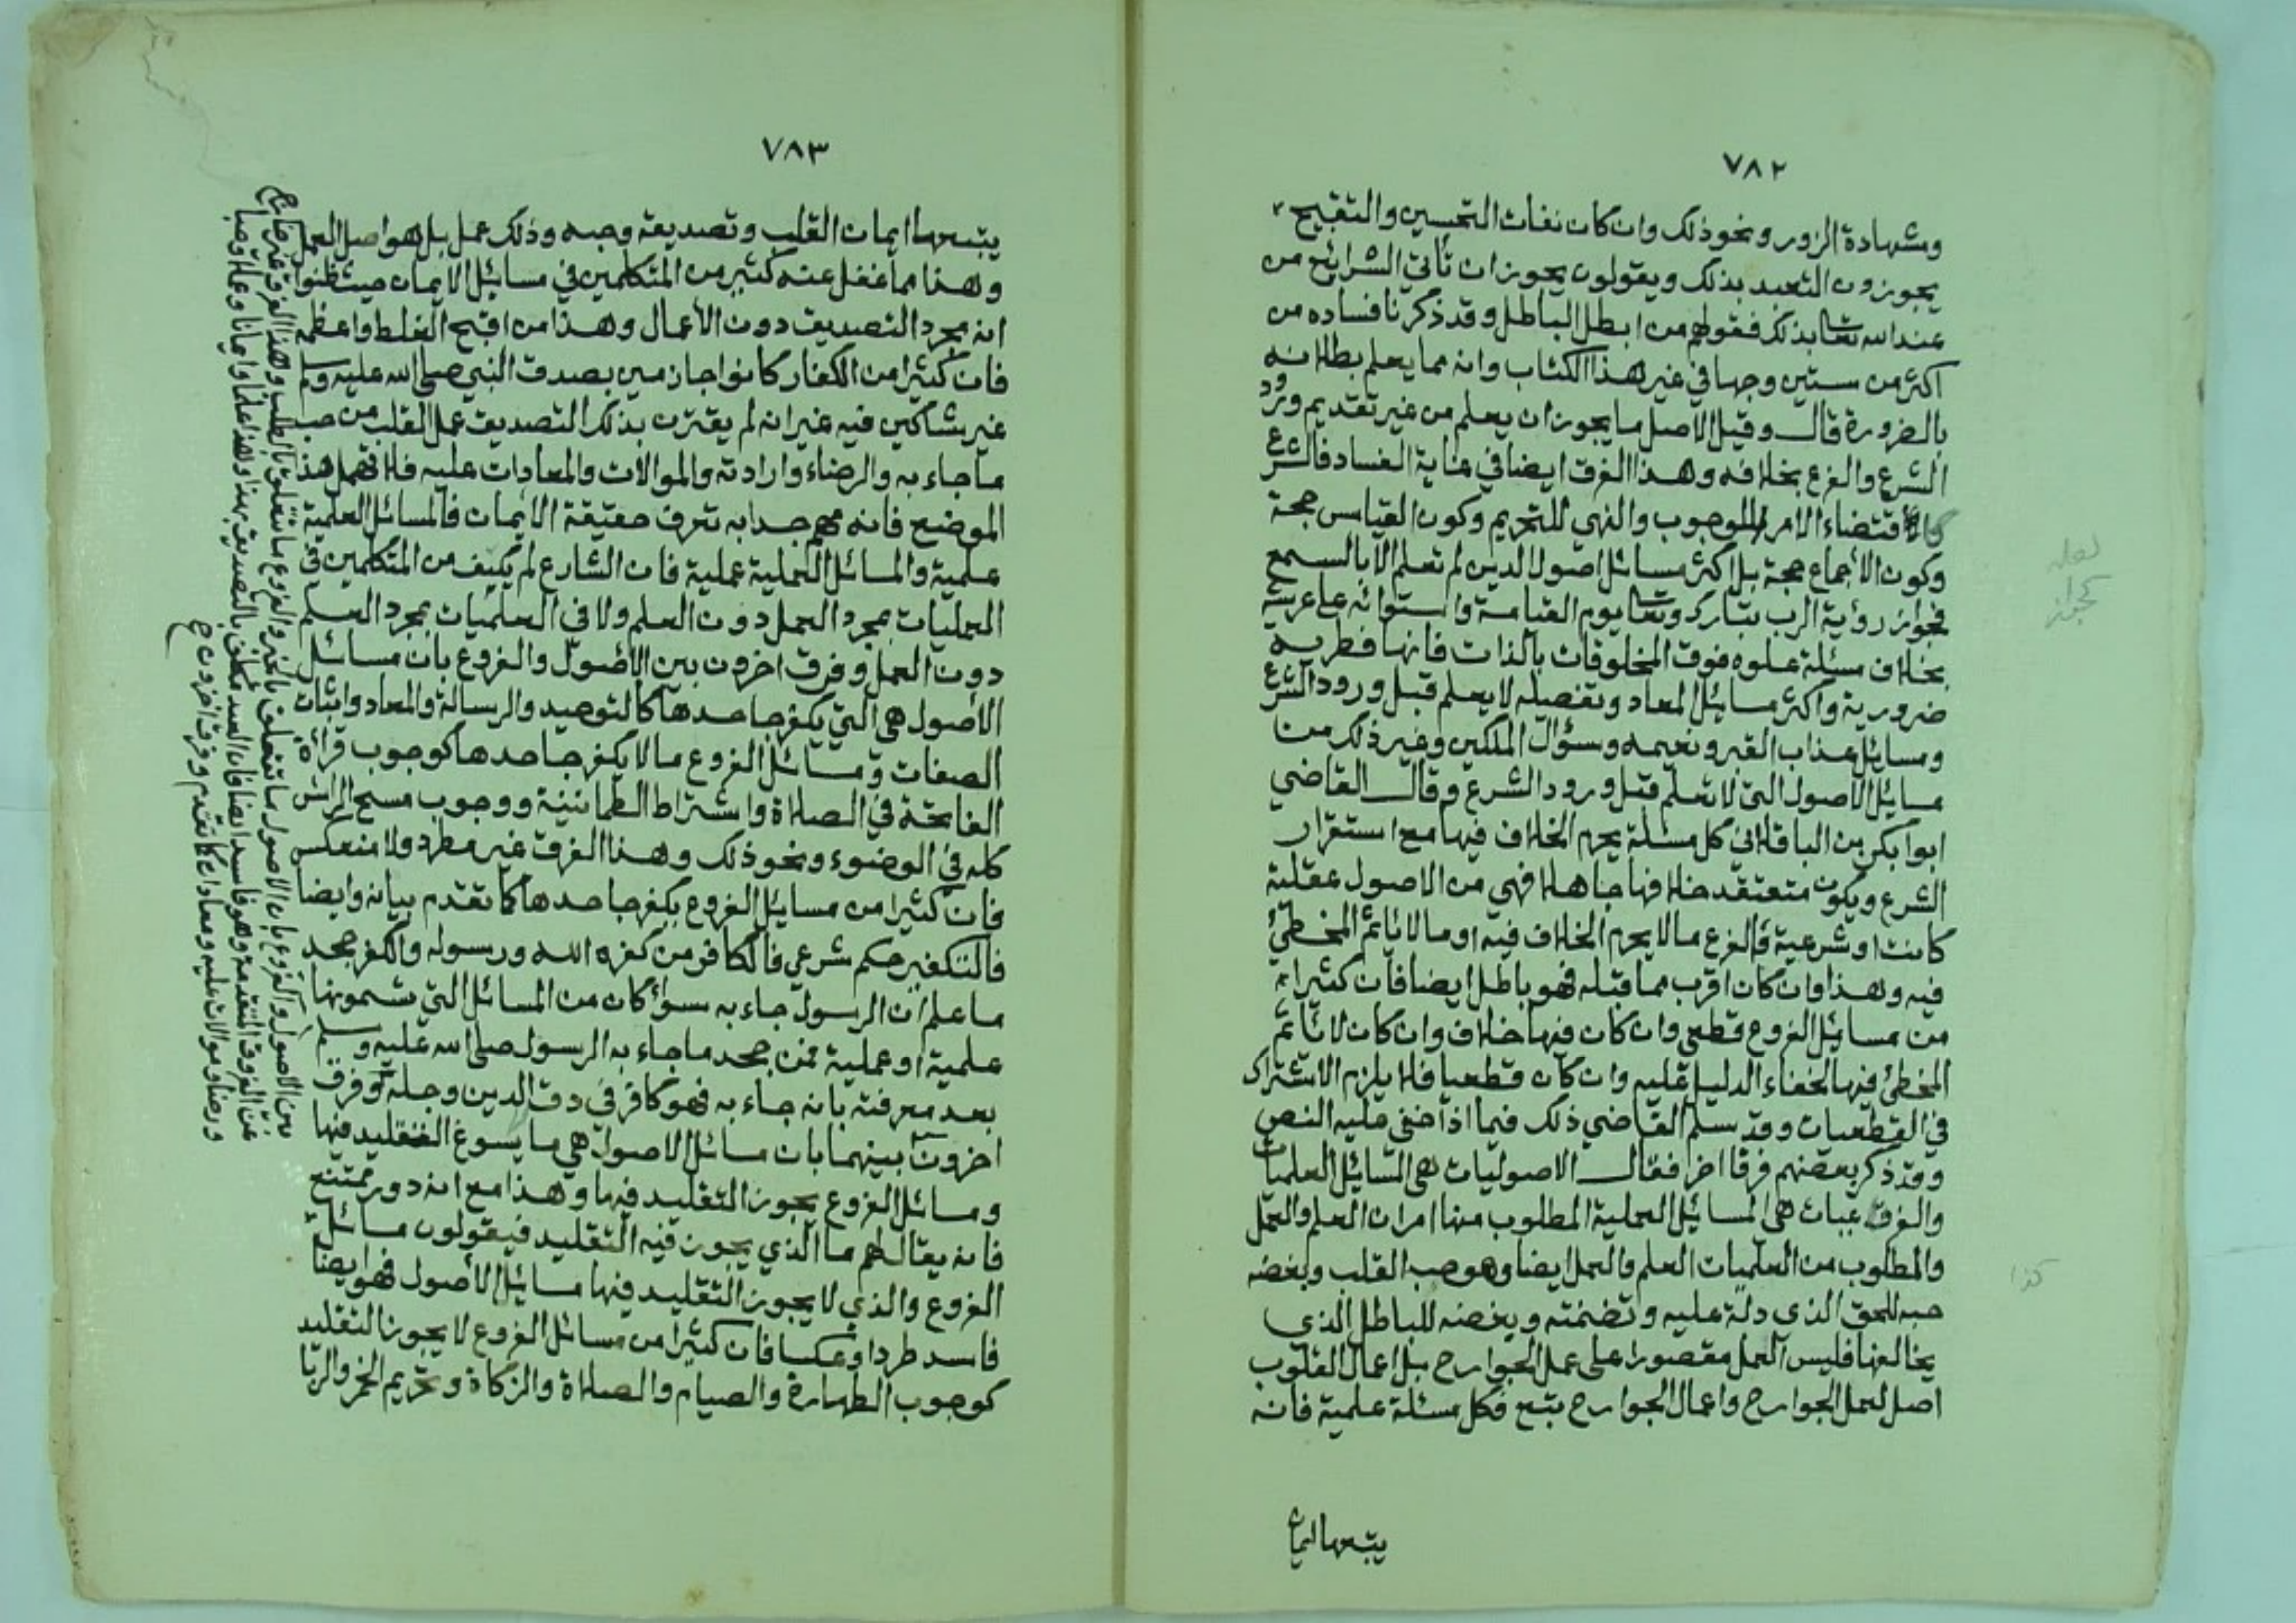 ٧٨٢
وشهادة الزور ونحو ذلك وان كان نفات التحسين والتقبيح
يجوزون التعبد بذلك ويقولون يجوز ان تأتي الشرائع من
عند الله تعا بذلك فقولهم من ابطل الباطل وقد ذكرنا فساده من
اكثر من ستين وجها في غير هذا الكتاب وانه مما يعلم بطلانه
بالضرورة قال وقيل الاصل ما يجوز ان يعلم من غير تقديم ورود
الشرع والفرع بخلافه وهذا الفرق ايضا في غاية الفساد فالشرع
كاقتضاء الامر للوجوب والنهي للتحريم وكون القياس حجة
وكون الاجماع حجة بل اكثر مسائل اصول الدين لم تعلم الا بالسمع
فجواز رؤية الرب تبارك وتعا يوم القيامة واستوائه على عرشه
بخلاف مسئلة علوه فوق المخلوقات بالذات فانها فطرية
ضرورية واكثر مسائل المعاد وتفصيله لا يعلم قبل ورود الشرع
ومسايل عذاب القبر ونعيمه وسؤال الملكين وغير ذلك من
مسايل الاصول التي لا تعلم قبل ورود الشرع وقال القاضي
ابوا بكر بن الباقلاني كل مسئلة يحرم الخلاف فيها مع استقرار
الشرع ويكون متعتقد خلافها جاهلا فهي من الاصول عقلية
كانت او شرعية فالفرع ما لا يحرم الخلاف فيه او ما لا ياثم المخطئ
فيه وهذا وان كان اقرب مما قبله فهو باطل ايضا فان كثيرا
من مسايل الفروع قطعي وان كان فيها خلاف وان كان لا يأثم
المخطئ فيها لخفاء الدليل عليه وان كان قطعيا فلا يلزم الاشتراك
في القطعيات وقد سلم القاضي ذلك فيما اذا خفي عليه النص
وقد ذكر بعضهم فرقا اخر فقال الاصوليات هي المسايل العلميات
والفرعيات هي المسايل العملية المطلوب منها امران العلم والعمل
والمطلوب من العلميات العلم والعمل ايضا وهو حب القلب وبغضه
حبه للحق الذي دلة عليه وتضمنته وبغضه للباطل الذي
يخالفها فليس العمل مقصورا على عمل الجوارح بل اعمال القلوب
اصل لعمل الجوارح واعمال الجوارح تبع فكل مسئلة علمية فانه
يتبعها ايمان
لعله
كجواز
كذا
٧٨٣
يتبعها ايمان القلب وتصديقه وحبه وذلك عمل بل هو اصل العمل
وهذا مما غفل عنه كثير من المتكلمين في مسائل الايمان حيث ظنوا
انه مجرد التصديق دون الأعمال وهذا من اقبح الغلط واعظمه
فان كثيرا من الكفار كانوا جازمين بصدق النبي صلى الله عليه وسلم
غير شاكين فيه غير انه لم يقترن بذلك التصديق عمل القلب من حب
ما جاء به والرضاء وارادته والموالات والمعادات عليه فلا تهمل هذا
الموضع فانه مهم جدا به تعرف حقيقة الايمان فالمسائل العلمية
علمية والمسائل العملية عملية فان الشارع لم يكيف من المتكلمين في
العمليات بمجرد العمل دون العلم ولا في العلميات بمجرد العلم
دون العمل وفرق اخرون بين الاصول والفروع بان مسائل
الاصول هي التي يكفر جاحدها كالتوحيد والرسالة والمعاد واثبات
الصفات ومسائل الفروع ما لا يكفر جاحدها كوجوب قراءة
الفاتحة في الصلاة واشتراط الطمانينة ووجوب مسح الراس
كله في الوضوء ونحو ذلك وهذا الفرق غير مطرد ولا منعكس
فان كثيرا من مسايل الفروع يكفر جاحدها كما تقدم بيانه وايضا
فالتكفير حكم شرعي فالكافر من كفره الله ورسوله والكفر جحد
ما علم ان الرسول جاء به سواء كان من المسائل التي تسمونها
علمية او عملية فمن جحد ما جاء به الرسول صلى الله عليه وسلم
بعد معرفته بانه جاء به فهو كافر في دق الدين وجله وفرق
اخرون بينهما بان مسائل الاصول هي ما يسوغ التقليد فيها
ومسائل الفروع يجوز التقليد فيها وهذا مع انه دور ممتنع
فانه يقال لهم ما الذي يجوز فيه التقليد فيقولون مسائل
الفروع والذي لا يجوز التقليد فيها مسائل الاصول فهو ايضا
فاسد طردا وعكسا فان كثيرا من مسائل الفروع لا يجوز التقليد
كوجوب الطهارة والصيام والصلاة والزكاة وتحريم الخمر والربا
بين الاصول والفروع بان الاصول ما تتعلق بالخبر والفروع ما تتعلق بالطلب وهذا الفرق غير خارج
عن الفروق المتقدمة وهو فاسد ايضا فان العبد مكلف بالتصديق بهذا وهذا علما وايمانا وعملا وحبا
ورضا وموالات عليه ومعادات كما تقدم وفرق اخرون ح